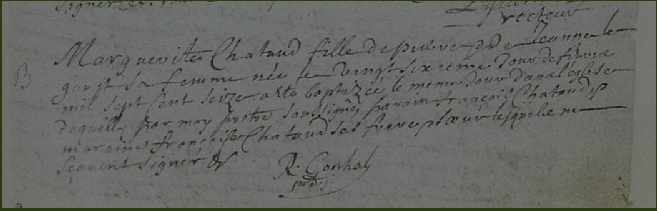 recteur
B
Marguerite Chataud fille de pierre & de Jeanne le
sa femme née le vingt sixieme Jour de
mil sept sent seize a été baptizée le meme Jour dans l'eglise
par moy pretre sousigné parain françois Chataud
maraine françoise Chataud ses frere & sœur lesquels ne
signer &
R. Gonhal